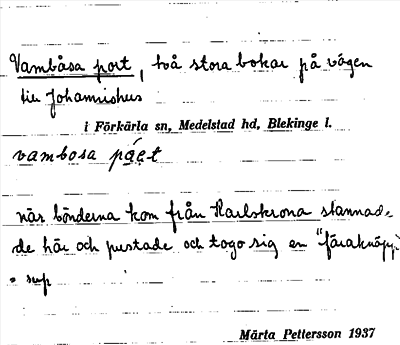 Vambåsa port, två stora bokar på vägen
till Johannishus
i Förkärla sn, Medelstad hd, Blekinge l.
vambosa pǫ́ɛt
när bönderna kom från Karlskrona stannad-
de här och pustade och togo sig en "färaknäpp"
= sup
Märta Pettersson 1937